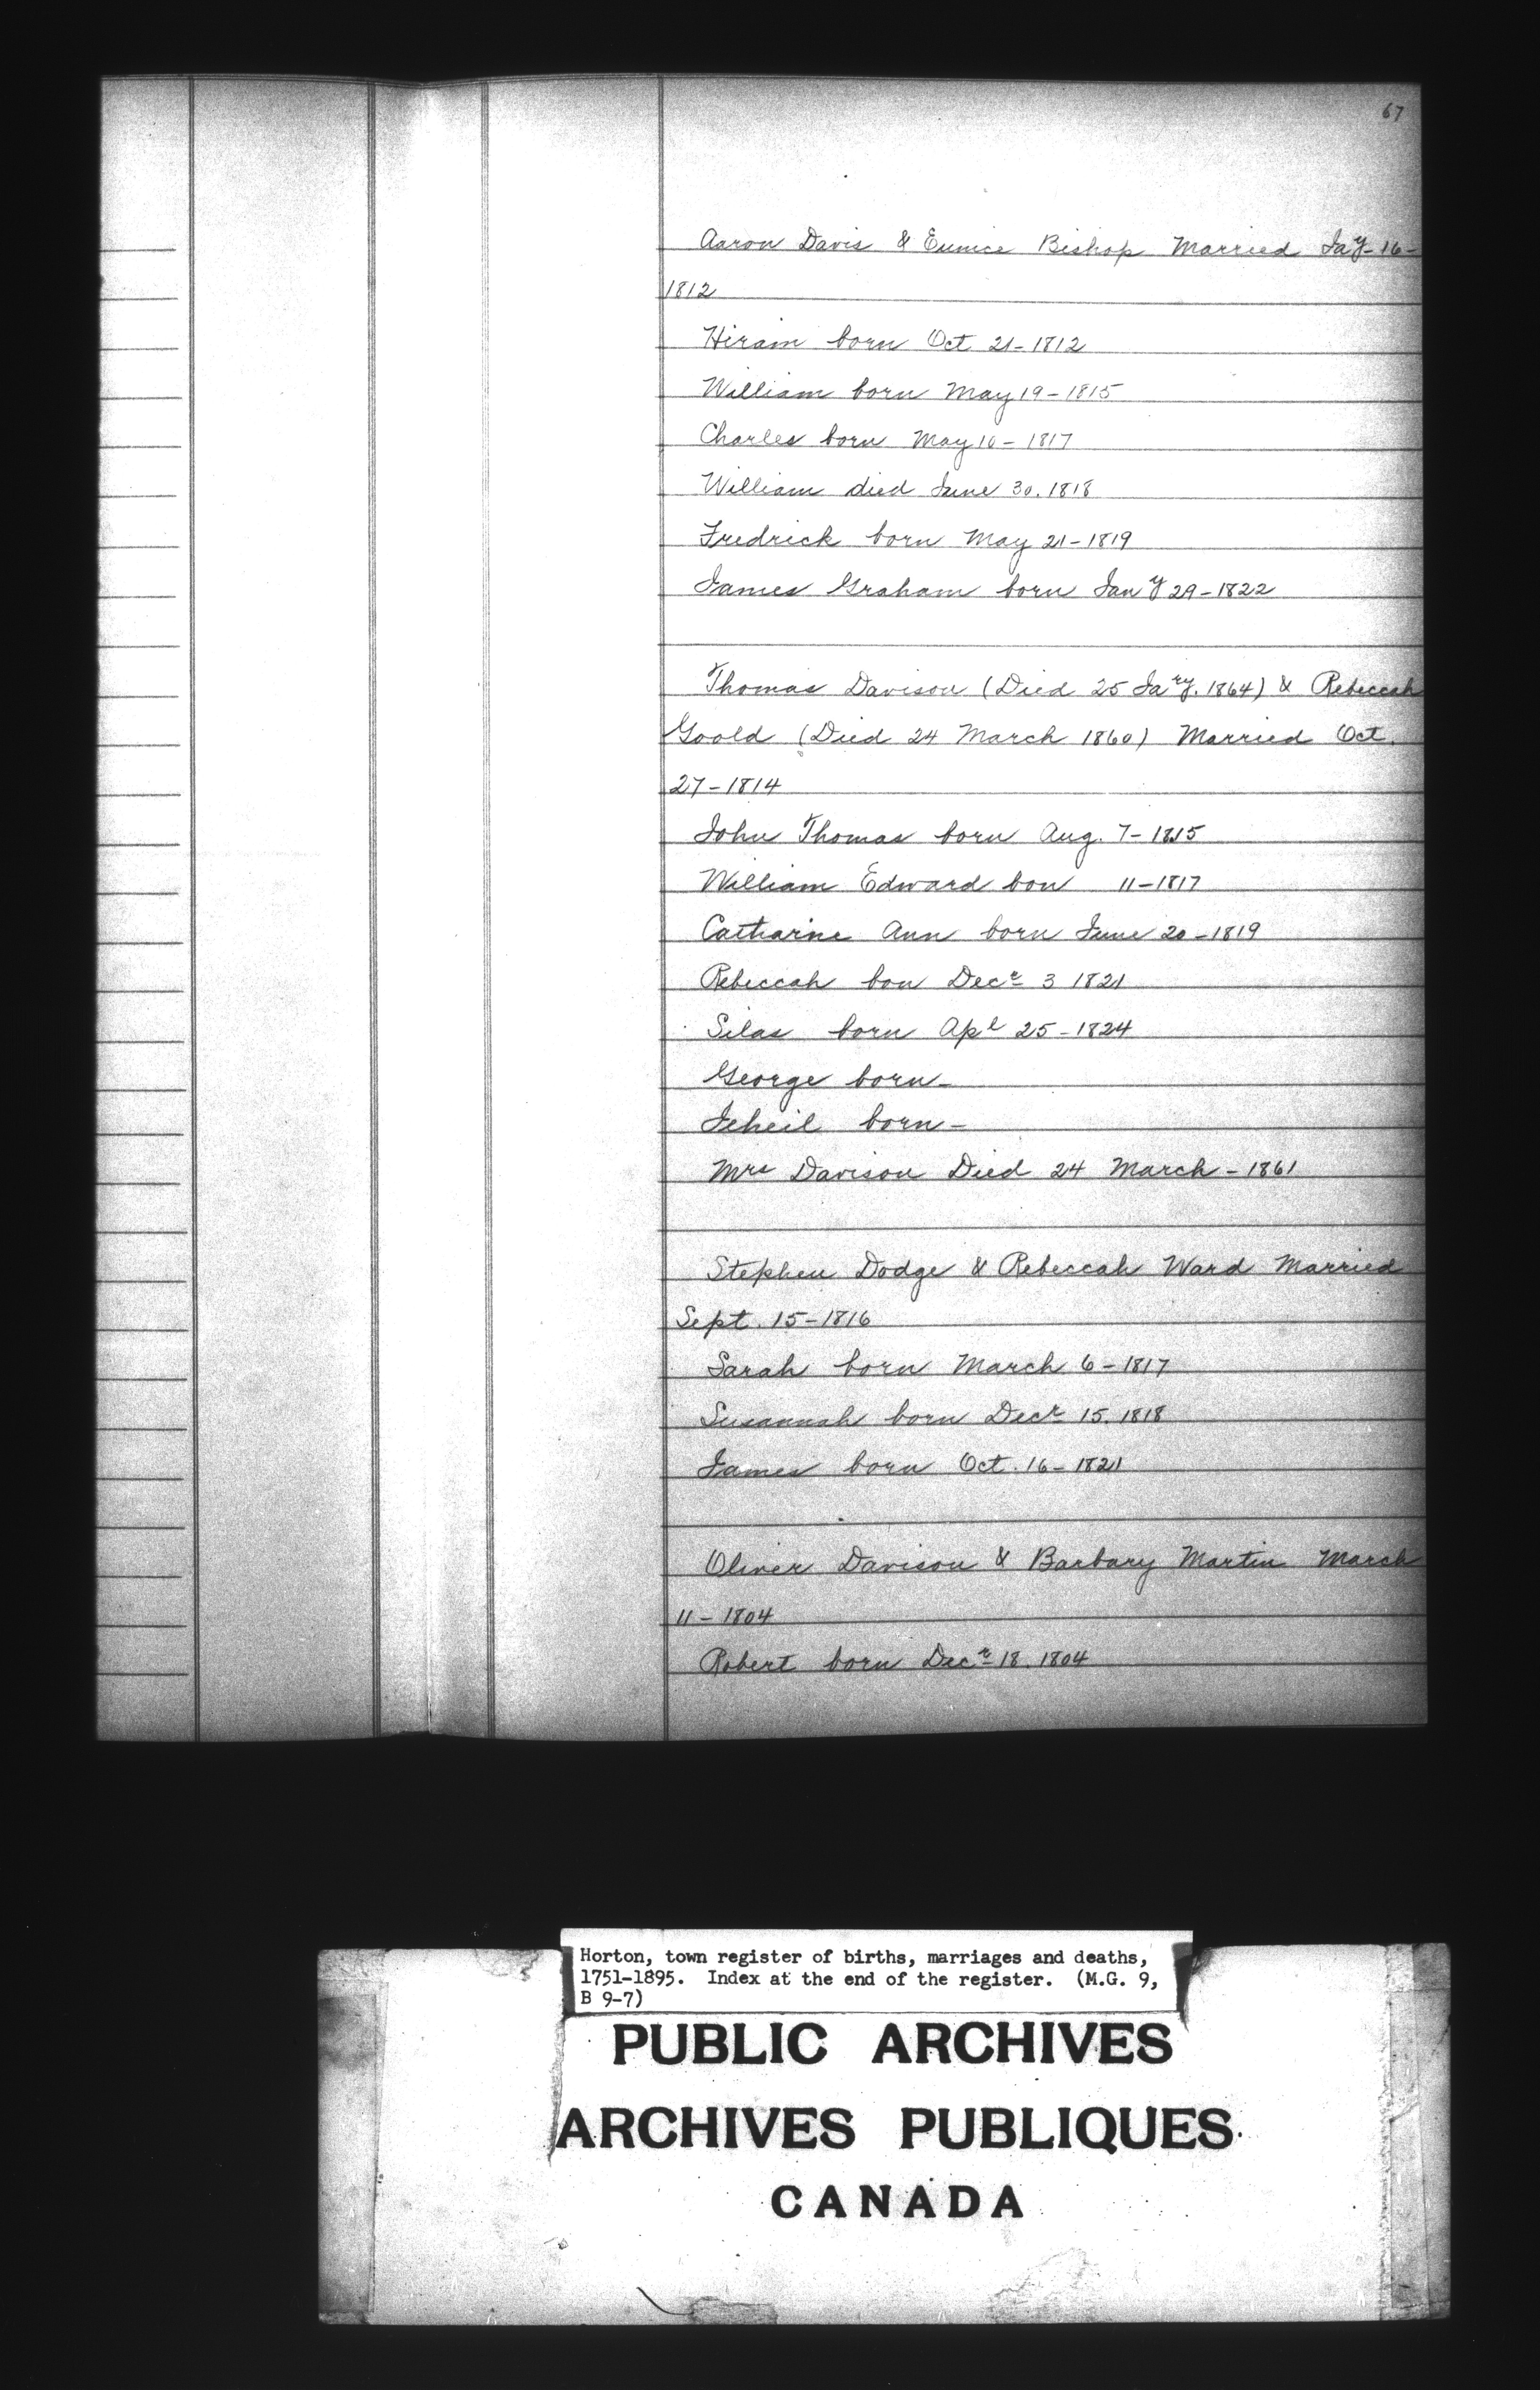 67
Aaron Davis & Eunice Bishop Married Jay- 16-
1812
Hiram born Oct 21-1812
William born May 19-1815
Charles born May 10-1817
William died June 30. 1818
Fredrick born May 21-1819
James Graham born Jany 29-1822
Thomas Davison (Died 25 Jary. 1864) & Rebeccah
Goold (Died 24 March 1860) Married Oct.
27-1814
John Thomas born Aug. 7-1815
William Edward bon 11-1817
Catharine Ann born June 20-1819
Rebeccah bon Decr 3 1821
Silas born Apl 25-1824
George born-
Jeheil born-
Mrs Davison Died 24 March-1861
Stephen Dodge & Rebeccah Ward Married
Sept. 15-1816
Sarah born March 6-1817
Susannah born Decr 15. 1818
James born Oct. 16-1821
Oliver Davison & Barbary Martin March
11-1804
Robert born Decr 18. 1804
Horton, town register of births, marriages and deaths,
1751-1895. Index at the end of the register. (M.G. 9,
B 9-7)
PUBLIC ARCHIVES
ARCHIVES PUBLIQUES
CANADA